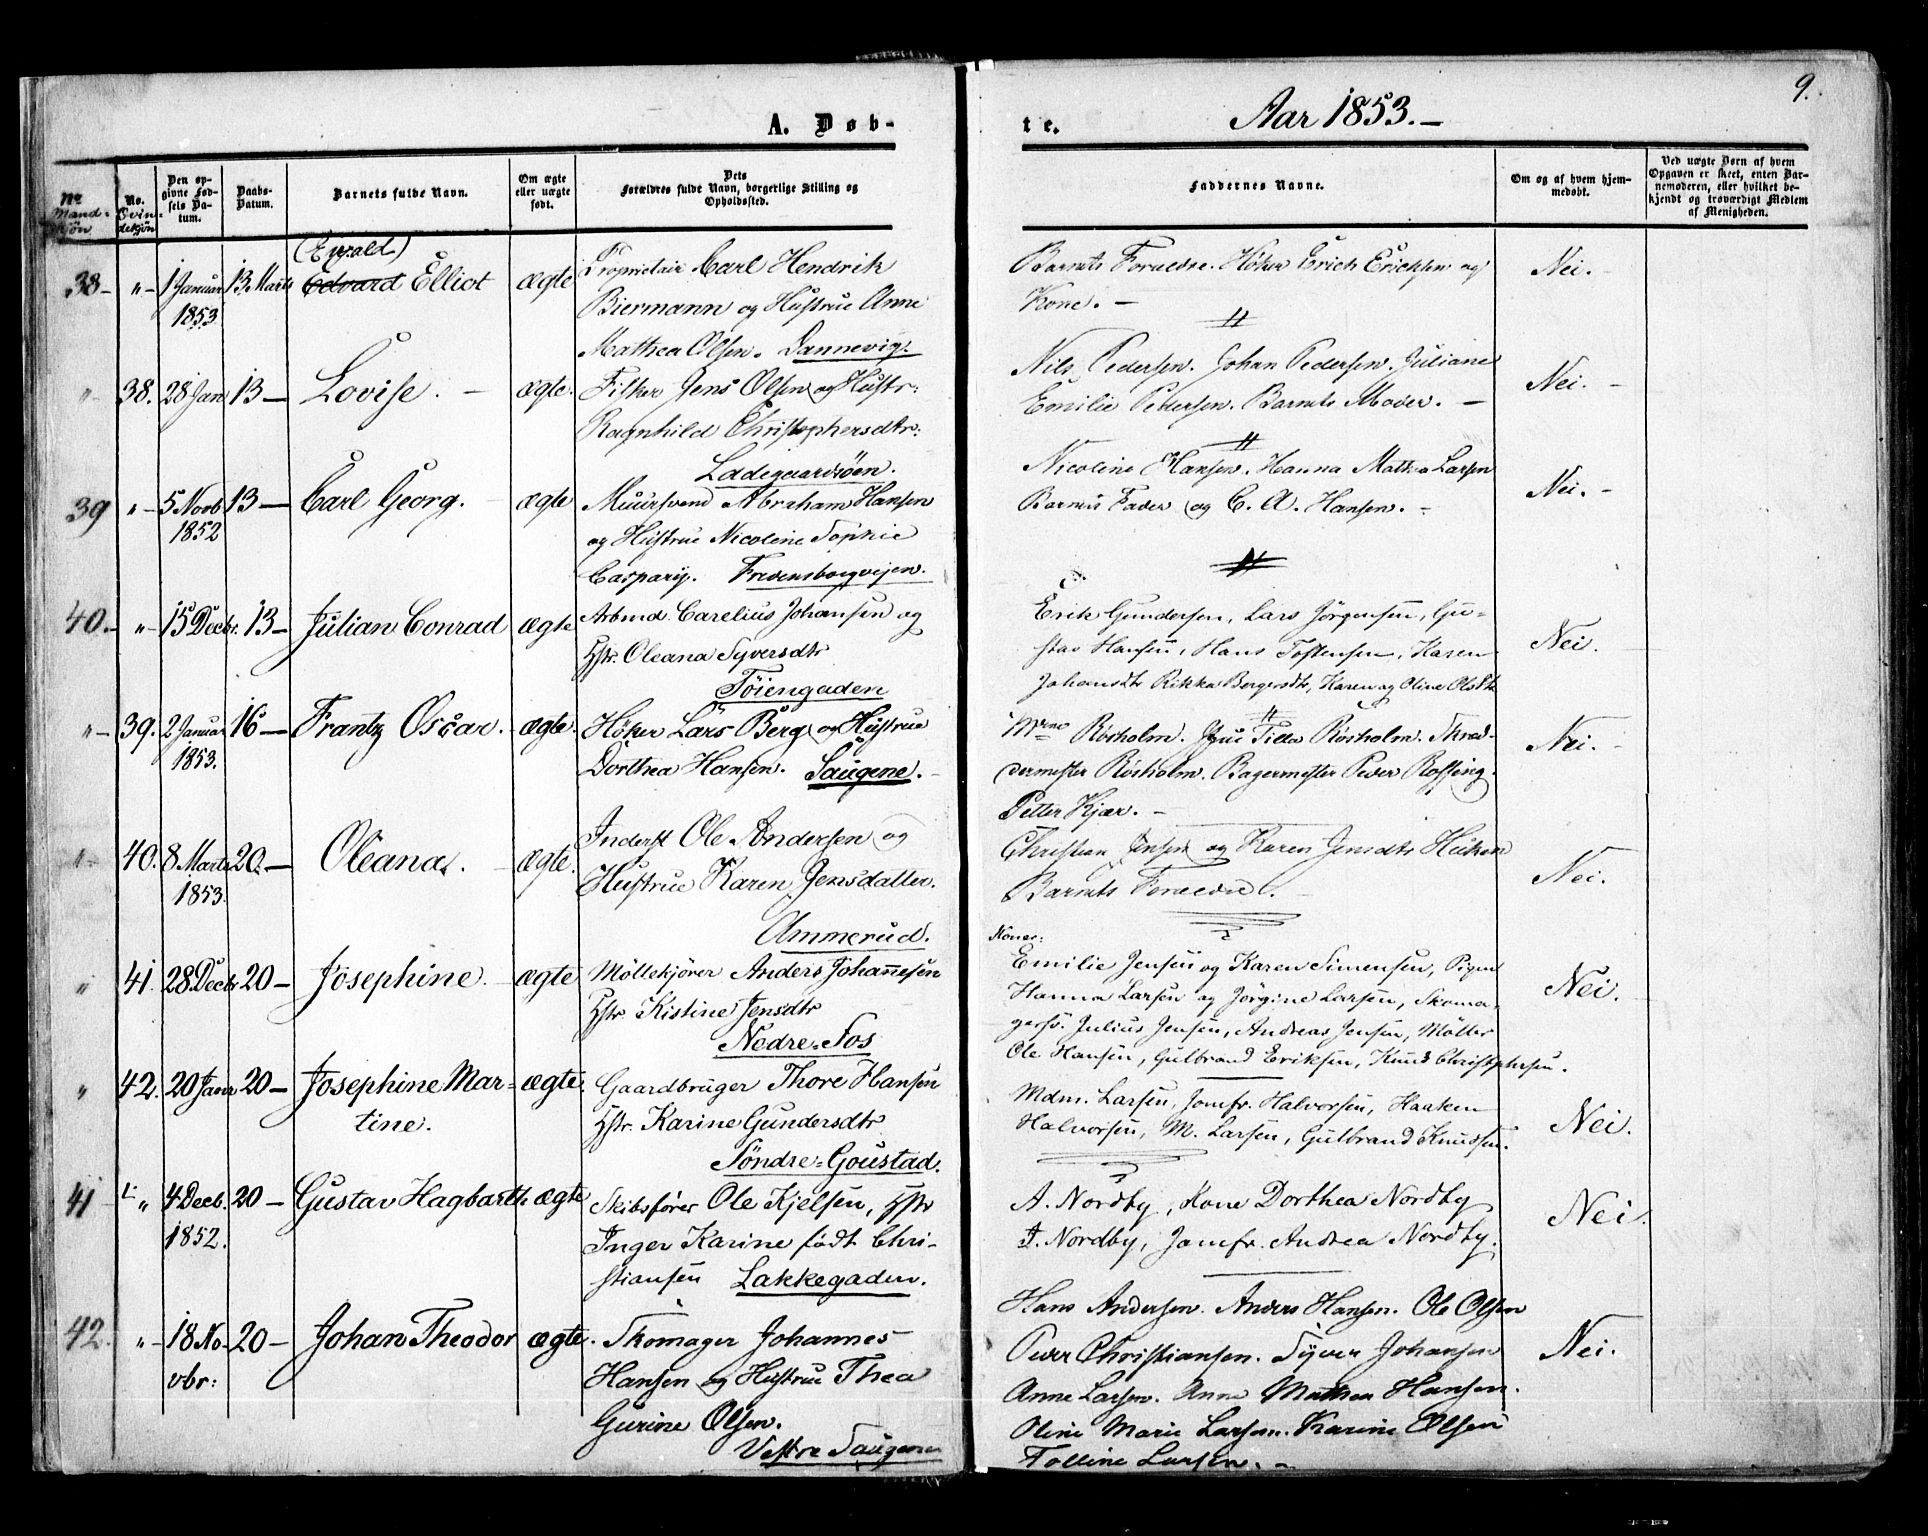 9.
A. Døb-
te.
Aar 1853.-
No Mandkjøn
No. Qvindekjøn
Den opgivne Fødsels Datum.
Daabs-Datum.
Barnets fulde Navn.
Om ægte eller uægte født.
Dets Forældres fulde Navn, borgerlige Stilling og Opholdssted.
Faddernes Navne.
Om og af hvem hjemmedøbt.
Ved uægte Børn af hvem Opgaven er skeet, enten Barnemoderen, eller hvilket bekjendt og troværdigt Medlem af Menigheden.
(Evald)
38- "- 1 Januar 1853 13 Marts Edvard Elliot ægte Proprietair Carl Hendrik
Biermann og Hustrue Anne
Mathea Olsen. Dannevig.
Barnets Forældre. Høker Erich Ericksen og
Kone. -
Nei. -
" 38. 28 Jan 13- Lovise. - ægte. Fisker Jens Olsen og Hustr:
Ragnhild Christophersdtr:
Ladegaardsøen.
Nils Pedersen. Johan Pedersen. Juliane
Emilie Pedersen. Barnets Moder. -
Nei. -
39 "- 5 Novb 1852 13- Carl Georg. - ægte Muursvend Abraham Hansen
og Hustrue Nicoline Sophie
Caspary. Fredensborgveien.
Nicoline Hansen. Hanna Mathea Larsen
Barnets Fader og C. A. Hansen. -
Nei. -
40.- "- 15 Decbr. 13- Julian Conrad ægte Arbmd. Carelius Johansen og
Hstr. Oleana Syversdtr
Töiengaden
Erik Gundersen, Lars Jörgensen, Gu-
stav Hansen, Hans Tostensen, Karen
Johansdtr Rikka Bergersdtr, Karen og Oline Olsdtr
Nei.
"- 39. 2 Januar 1853. 16- Frantz Oscar. - ægte. Höker Lars Berg og Hustrue
Dorthea Hansen. Saugene. -
Mme Rosholm. Jfru Tilla Rosholm. Skræd-
dermester Rosholm. Bagermester Peder Rossing.
Petter Kjær. -
Nei. -
"- 40. 8 Marts 1853. 20.- Oleana. - ægte. Inderst Ole Andersen og
Hustrue Karen Jensdatter.
Ammerud.
Christian Jensen og Karen Jensdtr
Barnets Forældre.
Nei.
" 41. 28 Decbr 20- Josephine. - ægte Möllekjörer Anders Johannesen
Hstr. Kistine Jensdtr
Nedre=Fos
Koner:
Emilie Jensen og Karen Simensen, Pigen
Hanna Larsen og Jörgine Larsen, Skoma-
gersv. Julius Jensen, Andreas Jensen, Möller
Ole Hansen, Gulbrand Eriksen, Knud Christophersen.
Nei.
" 42. 20 Janr 20- Josephine Mar=
tine.
ægte. Gaardbruger Thore Hansen
Hstr. Karine Gundersdtr
Söndre=Goustad.
Mdm. Larsen, Jomfr. Halvorsen, Haaken
Halvorsen, M. Larsen, Gulbrand Knudsen.
Nei.
41 " 4 Decb. 1852. 20- Gustav Hagbarth ægte Skibsfører Ole Kjelsen, Hstr
Inger Karine födt Chri-
stiansen Lakkegaden.
A. Nordby, Kone Dorthea Nordby
I. Nordby, Jomfr. Andrea Nordby.
Nei.
42. "- 18 No-
vbr: 20- Johan Theodor ægte. Skomager Johannes
Hansen og Hustrue Thea
Gurine Olsen.
Vestre Saugene
Hans Andersen. Anders Hansen. Ole Olsen
Peder Christiansen. Syver Johansen
Anne Larsen. Anne Mathea Hansen.
Oline Marie Larsen. Karine Olsen
Olline Larsen. -
Nei.